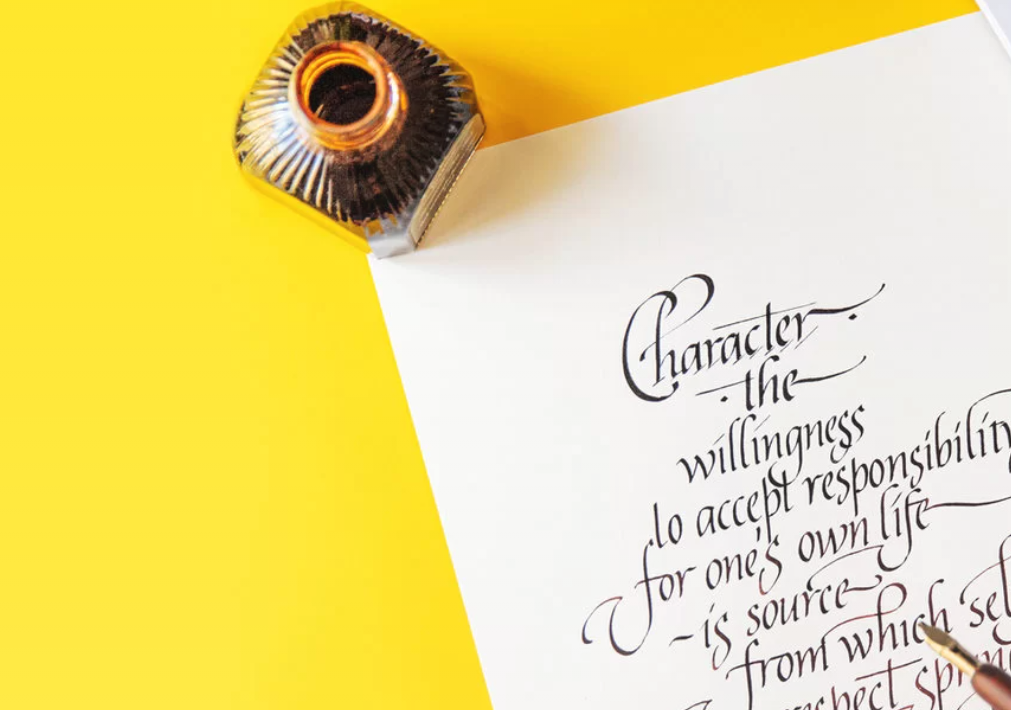 Character
the
willingness
to accept responsibility
for one's own life
-is source
from which sel
respect sprin